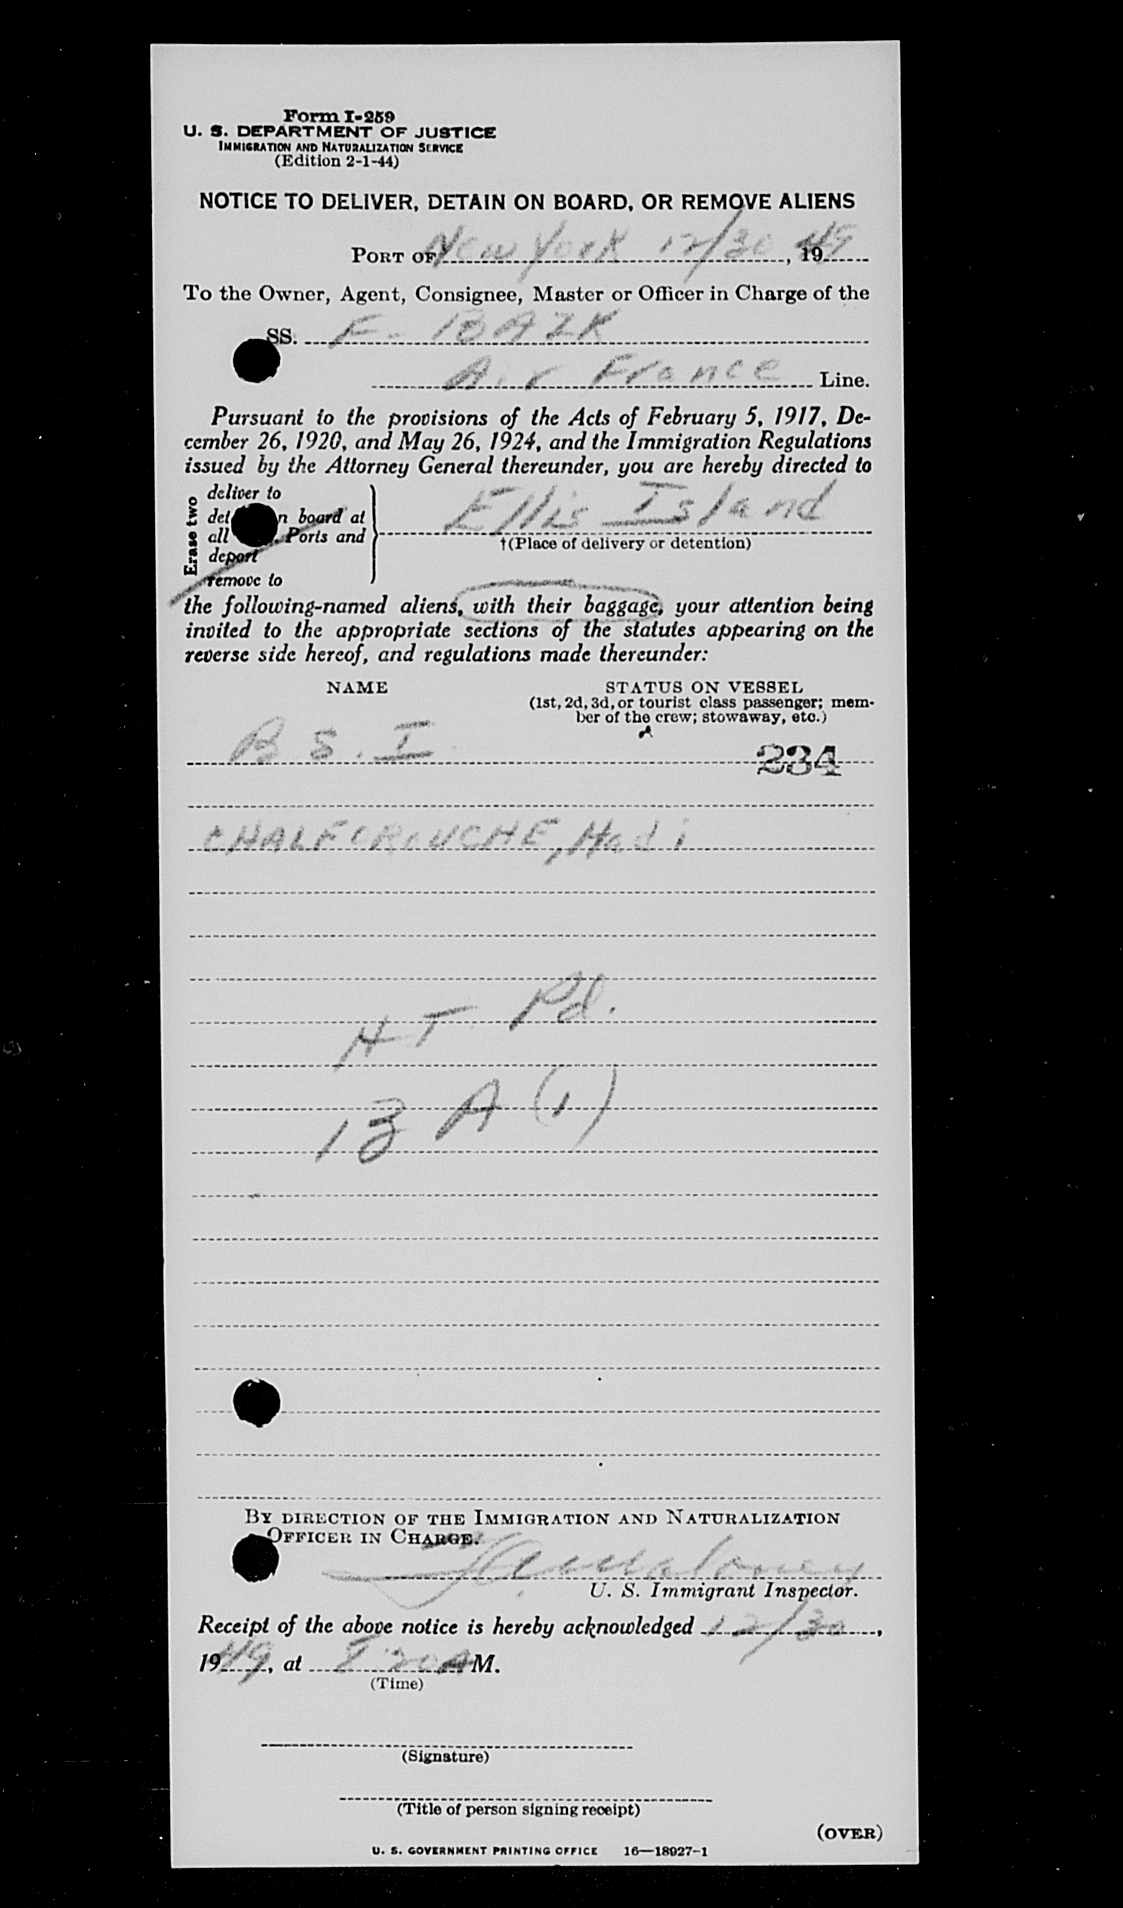 Form I-259
U. S. DEPARTMENT OF JUSTICE
IMMIGRATION AND NATURALIZATION SERVICE
(Edition 2-1-44)
NOTICE TO DELIVER, DETAIN ON BOARD, OR REMOVE ALIENS
PORT OF New York 12/30, 1949
To the Owner, Agent, Consignee, Master or Officer in Charge of the
SS. F-BAZK
Air France Line.
Pursuant to the provisions of the Acts of February 5, 1917, De-
cember 26, 1920, and May 26, 1924, and the Immigration Regulations
issued by the Attorney General thereunder, you are hereby directed to
Erase two
deliver to
det n board at
all Ports and
deport
remove to
Ellis Island
†(Place of delivery or detention)
the following-named aliens, with their baggage, your attention being
invited to the appropriate sections of the statutes appearing on the
reverse side hereof, and regulations made thereunder:
NAME STATUS ON VESSEL
(1st, 2d, 3d, or tourist class passenger; mem-
ber of the crew; stowaway, etc.)
B S. I 234
CHALFOROUCHE, Hadi
HT Pd.
13 A (1)
BY DIRECTION OF THE IMMIGRATION AND NATURALIZATION
OFFICER IN CHARGE.
U. S. Immigrant Inspector.
Receipt of the above notice is hereby acknowledged 12/30,
1949, at 8:20 A M.
(Time)
(Signature)
(Title of person signing receipt)
(OVER)
U. S. GOVERNMENT PRINTING OFFICE 16—18927-1